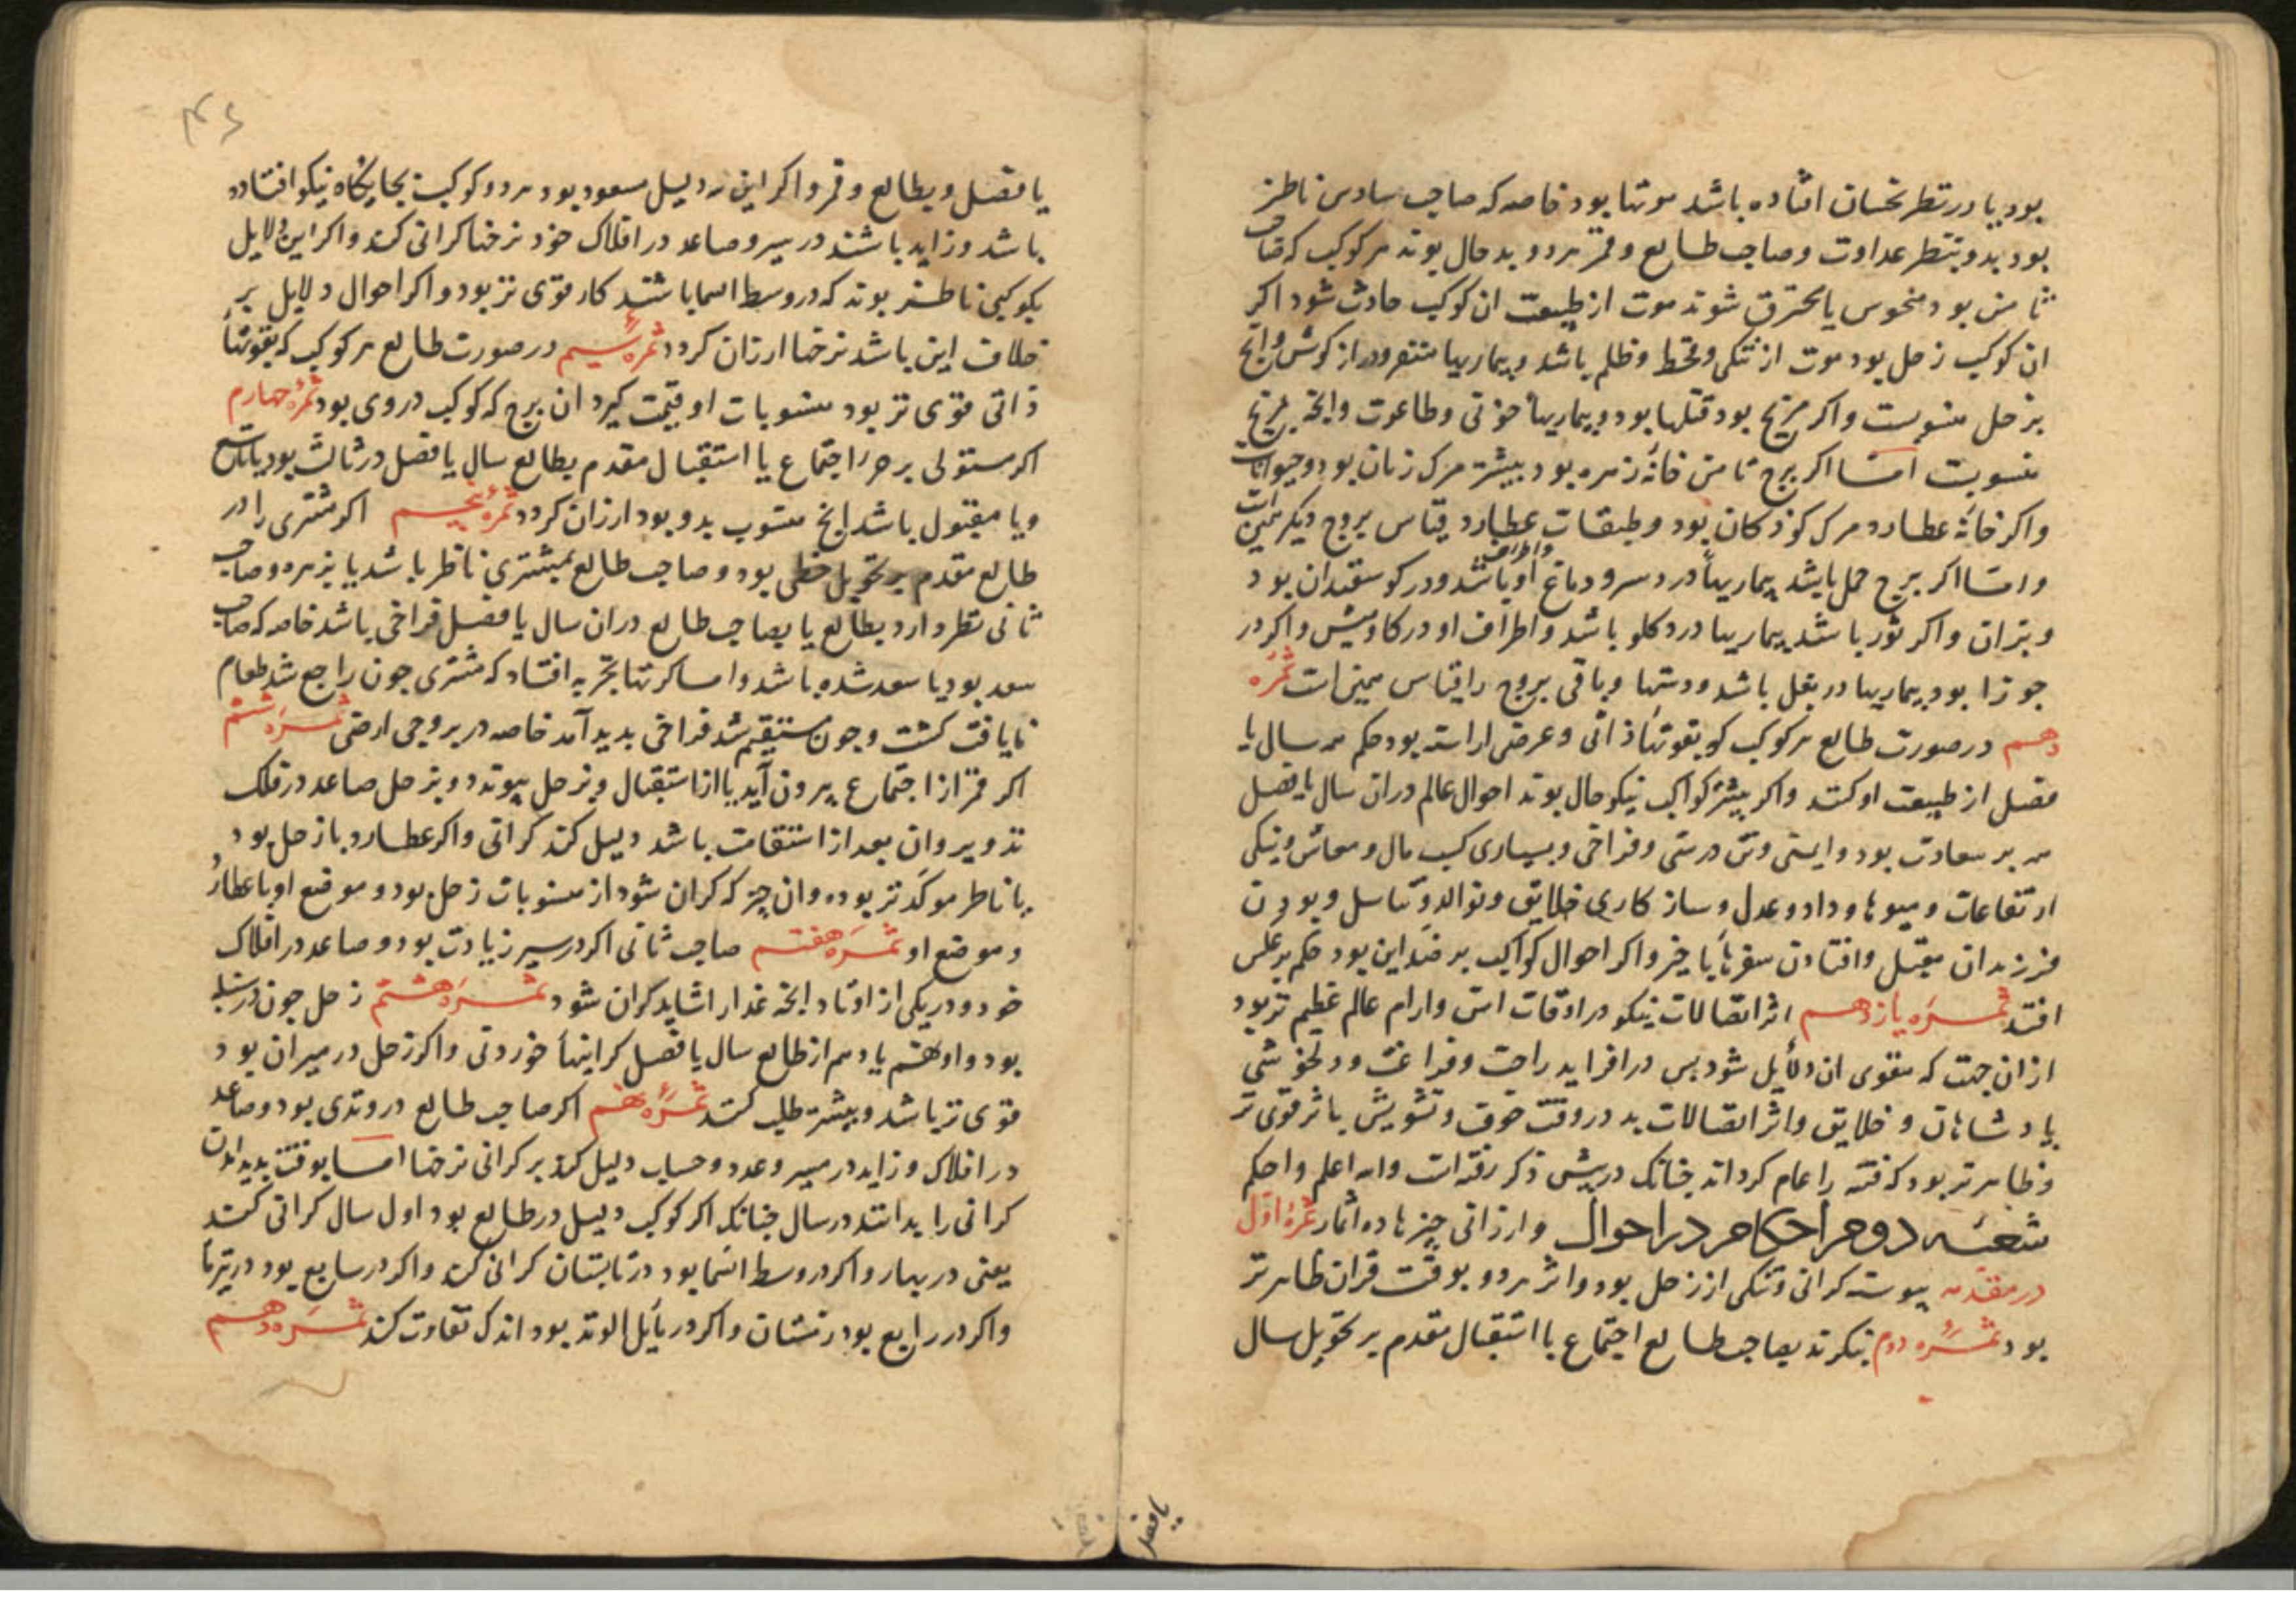 بود یا در نظر نحسان افتاده باشد موتها بود خاصه که صاحب سادس ناظر
بود بدو بنظر عداوت و صاحب طالع و قمر هر دو بد حال بوند هر کوکب که صاحب
ثامن بود منحوس یا محترق شوند موت از طبیعت ان کوکب حادث شود اکر
ان کوکب زحل بود موت از تنکی و قحط و ظلم باشد و بیماریها متنفر و دراز کوشش وانج
بزحل منسوبست واکر مریخ بود قتلها بود و بیماریها خونی و طاعون وانچه بمریخ
منسوبت اما اکر برج ثامن خانه زهره بود بیشتر مرک زنان بود و حیوانات
واکر خانه عطارد مرک کوذکان بود و طبقات عطارد قیاس بروج دیکر همین است
واما اکر برج حمل باشد بیماریها درد سر و دماغ واطراف او باشد ودر کوسفندان بود
وبزان واکر ثور باشد بیماریها درد کلو باشد واطراف او در کاومیش واکر در
جوزا بود بیماریها در بغل باشد ودستها وباقی بروج را قیاس همین است ثمره
دهم در صورت طالع هر کوکب کو بقوتها ذاتی وعرضی اراسته بود حکم همه سال یا
فصل از طبیعت او کنند واکر بیشتر کواکب نیکو حال بوند احوال عالم دران سال یا فصل
همه بر سعادت بود وایمنی وتن درستی وفراخی وبسیاری کسب مال ومعاش ونیکی
ارتفاعات ومیوها وداد وعدل وساز کاری خلایق وتوالد وتناسل وبودن
فرزندان مقبل وافتادن سفرها با خیر واکر احوال کواکب بر ضد این بود حکم بر عکس
افتد ثمره یازدهم اثر اتصالات نیکو در اوقات امن وارام عالم عظیم تر بود
ازان جهت که مقوی ان دلایل شود بس درافزاید راحت وفراغت ودلخوشی
پادشاهان وخلایق واثر اتصالات بد در وقت خوف وتشویش باثر قوی تر
وظاهرتر بود که فتنه را عام کرداند جنانک در پیش ذکر رفته است والله اعلم واحکم
شعبه دوم در احکام در احوال وارزانی چیزها ده اثمار ثمرهٔ اول
در مقدمه پیوسته کرانی وتنکی از زحل بود واثر هر دو بوقت قران ظاهرتر
بود ثمره دوم بنکرند بصاحب طالع اجتماع یا استقبال مقدم بر تحویل سال
یا فصل
یا فصل وبطالع وقمر واکر این سه دلیل مسعود بود هر دو کوکب بجایکاه نیکو افتاده
باشد وزاید باشند در سیر وصاعد در افلاک خود نرخها کرانی کند واکر این دلایل
بکوکبی ناظر بوند که در وسط السما باشند کار قوی تر بود واکر احوال دلایل بر
خلاف این باشد نرخها ارزان کردد ثمره سیم در صورت طالع هر کوکب که بقوتها
ذاتی قوی تر بود منسوبات او قیمت کیرد ان برج که کوکب در وی بود ثمره چهارم
اکر مستولی بر جزء اجتماع یا استقبال مقدم بطالع سال یا فصل در ثالث بود یا تاسع
ویا مقبول باشد انچ منسوب بدو بود ارزان کردد ثمره پنجم اکر مشتری را در
طالع مقدم بر تحویل حظی بود وصاحب طالع بمشتری ناظر باشد یا بزهره وصاحب
ثانی نظر دارد بطالع یا بصاحب طالع دران سال یا فصل فراخی باشد خاصه که صاحب
سعد بود یا سعد شده باشد واما کرتها بتجربه افتاد که مشتری جون راجع شد طعام
نایافت کشت وجون مستقیم شد فراخی بدید آمد خاصه در بروجی ارضی ثمره ششم
اکر قمر از اجتماع بیرون آید یا از استقبال وبزحل پیوندد وبزحل صاعد در فلک
تدویر وان بعد از استقامت باشد دلیل کند کرانی واکر عطارد با زحل بود
یا ناظر موکدتر بوده وان چیز که کران شود از منسوبات زحل بود وموضع او یا عطارد
وموضع او ثمره هفتم صاحب ثانی اکر در سیر زیادت بود وصاعد در افلاک
خود ودر یکی از اوتاد انچه غذا را شاید کران شود ثمره هشتم زحل جون در سنبله
بود واو هفتم یا دهم از طالع سال یا فصل کرانیها خوردنی واکر زحل در میزان بود
قوی تر باشد وبیشتر طلب کنند ثمره نهم اکر صاحب طالع در وتدی بود وصاعد
در افلاک وزاید در مسیر وعدد وحساب دلیل کند بر کرانی نرخها اما بوقت بدید امدن
کرانی را بدانند در سال جنانک اکر کوکب دلیل در طالع بود اول سال کرانی کند
یعنی در بهار واکر در وسط السما بود در تابستان کرانی کند واکر در سابع بود در تیرماه
واکر در رابع بود زمستان واکر در مایل الوتد بود اندک تفاوت کند ثمره دهم